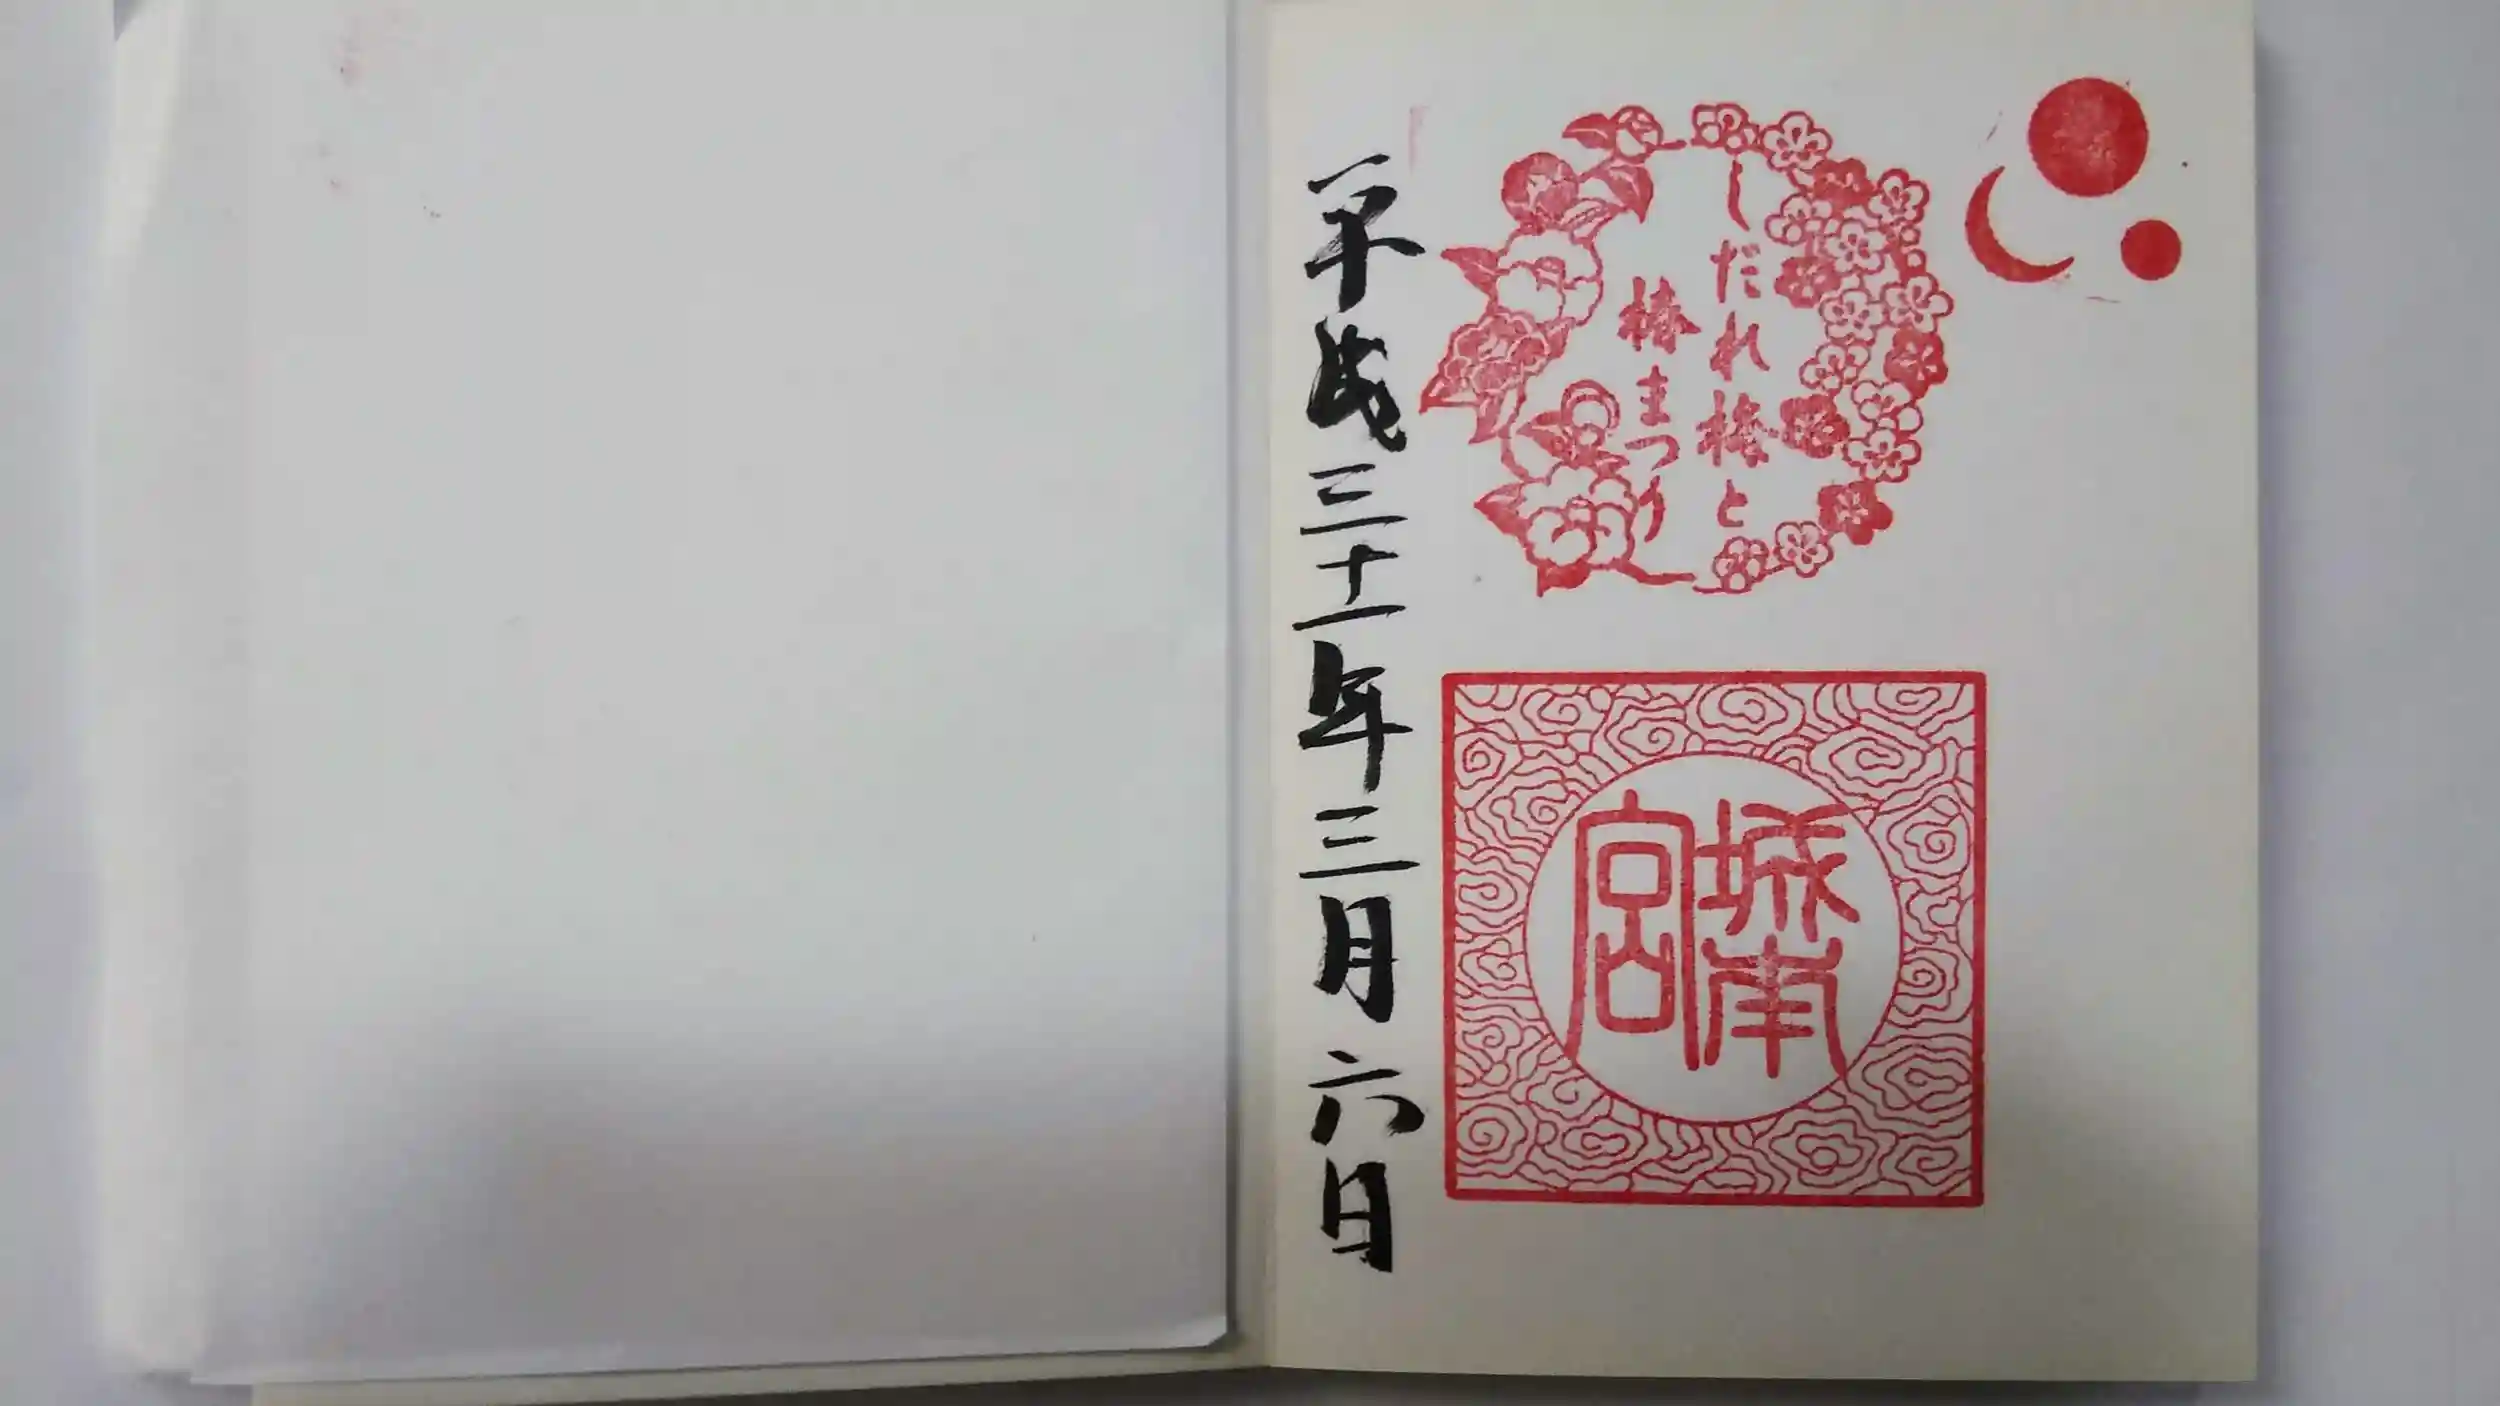 しだれ梅と
椿まつり
城南
宮
平成三十一年三月六日